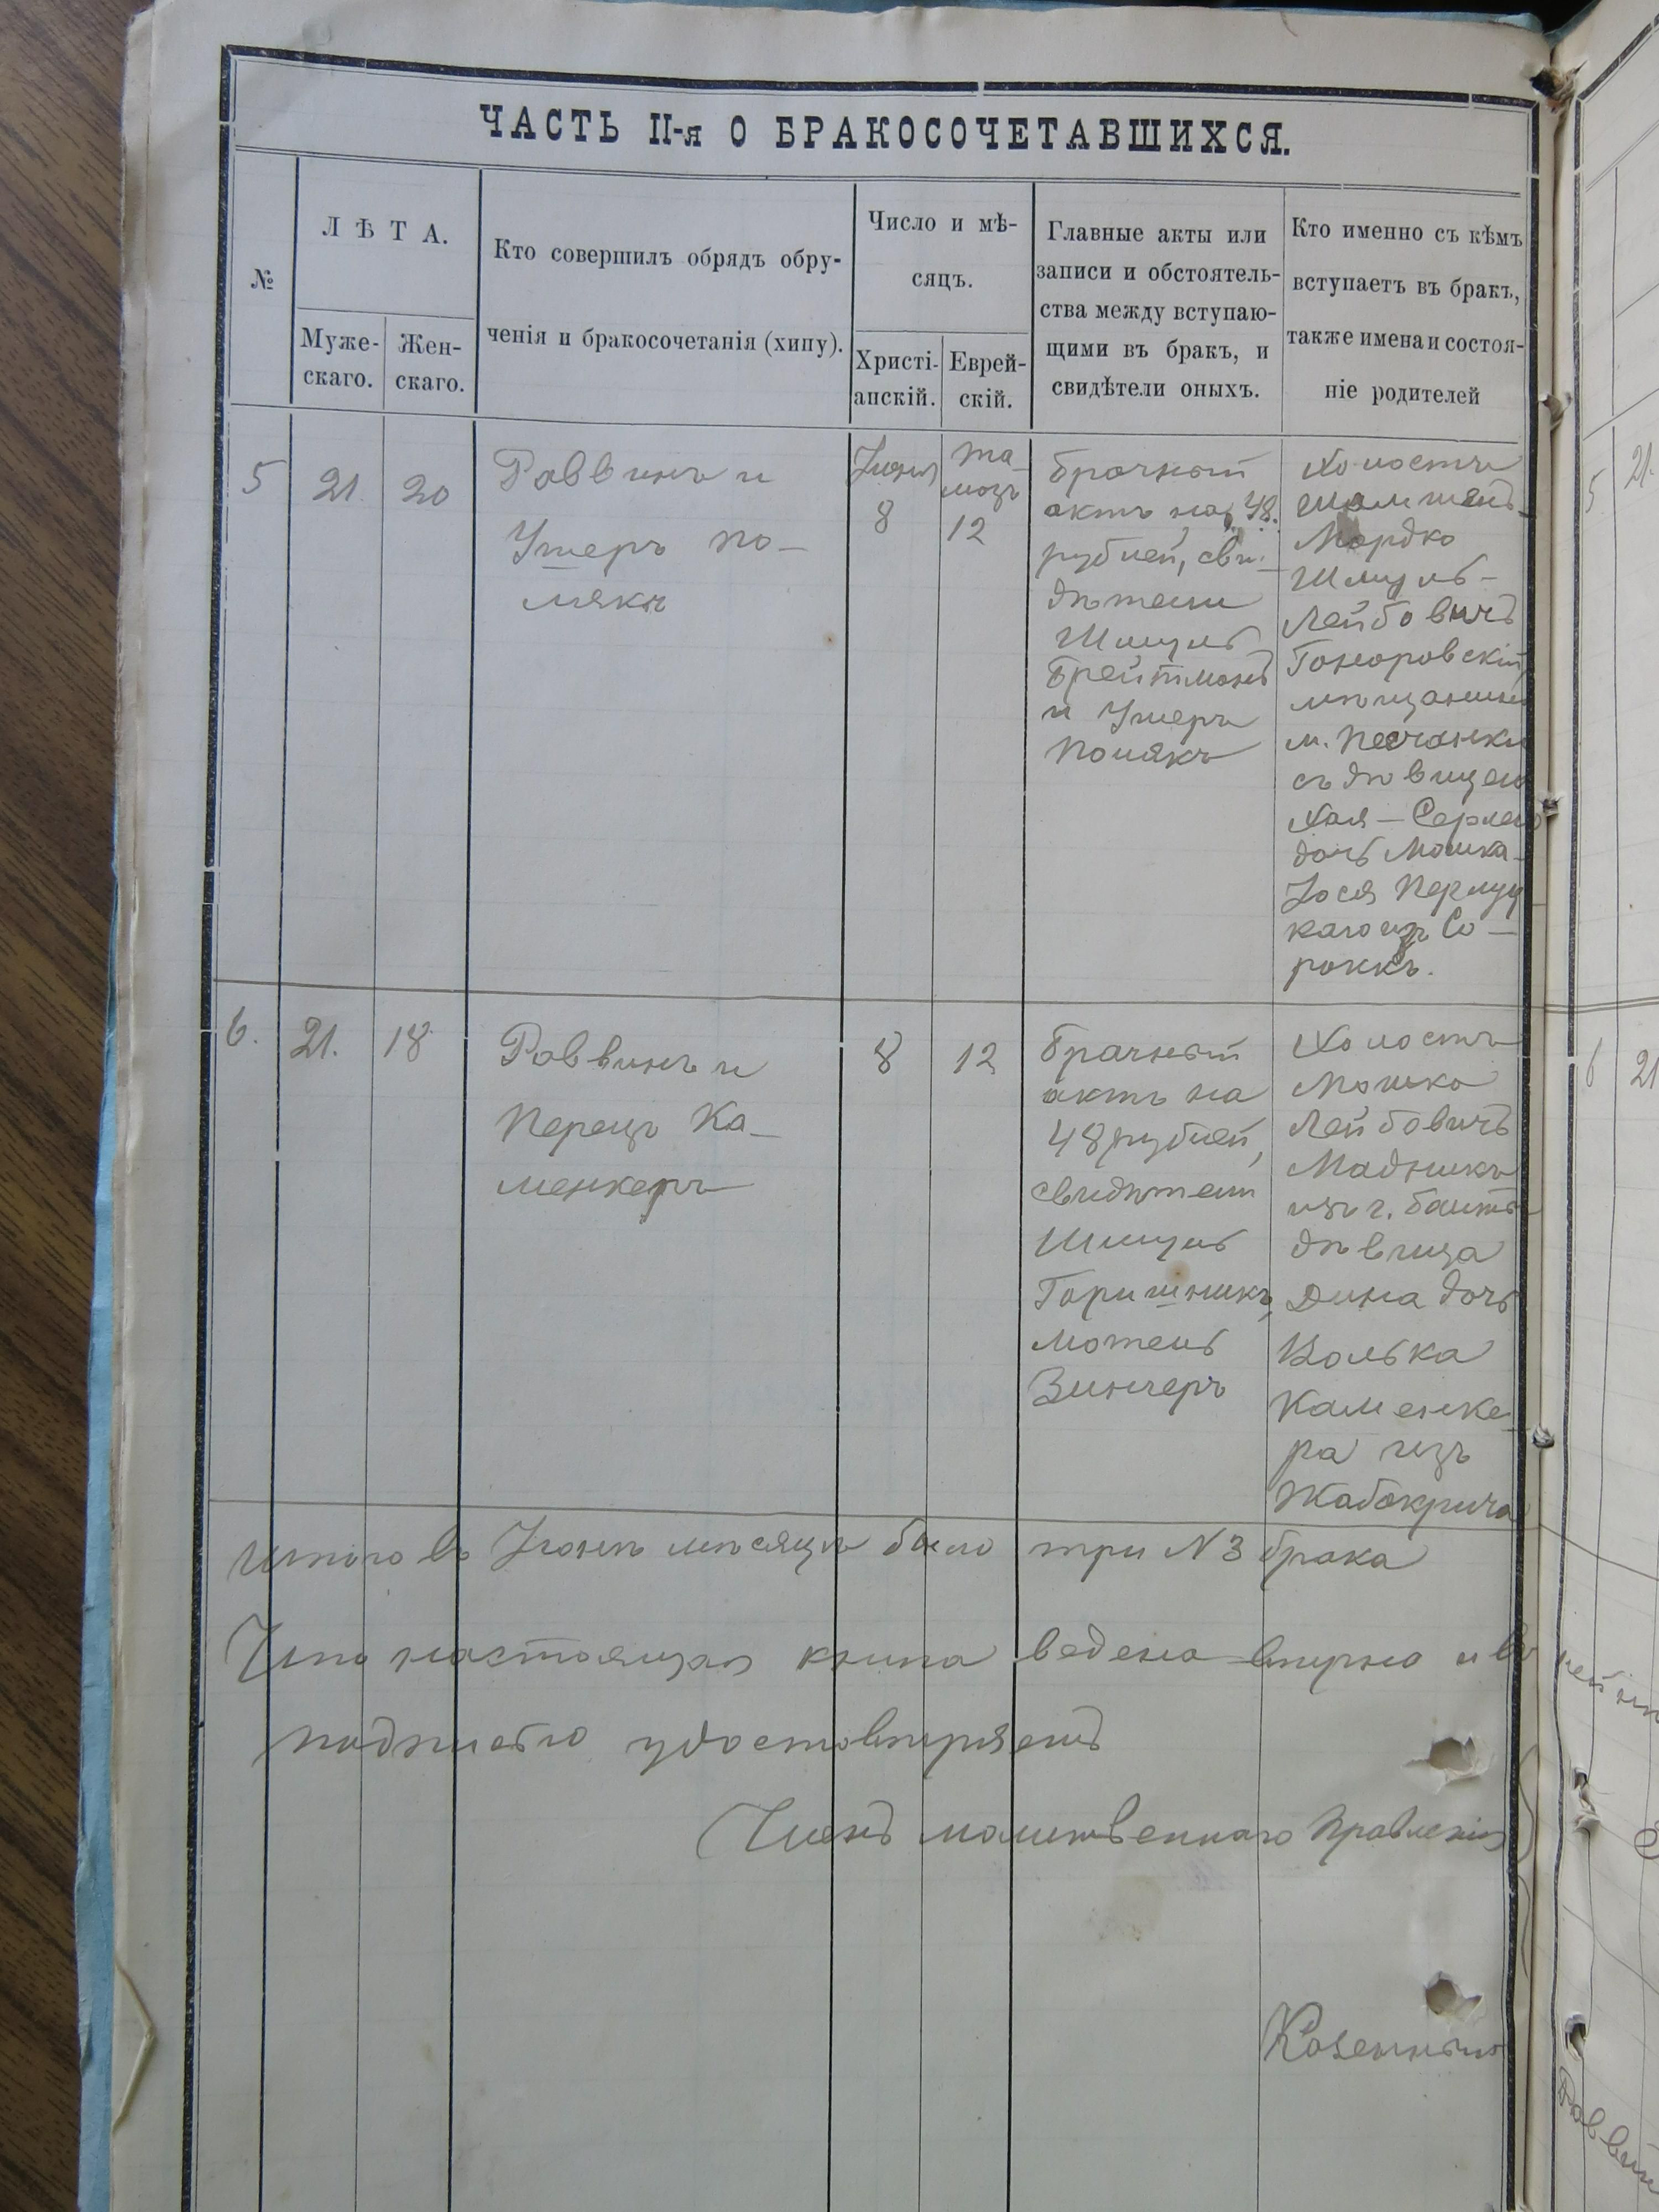 ЧАСТЬ II-я О БРАКОСОЧЕТАВШИХСЯ.
№
ЛѢТА.
Муже-
скаго.
Жен-
скаго.
Кто совершилъ обрядъ обру-
ченія и бракосочетанія (хипу).
Число и мѣ-
сяцъ.
Христі-
анскій.
Еврей-
скій.
Главные акты или
записи и обстоятель-
ства между вступаю-
щими въ бракъ, и
свидѣтели оныхъ.
Кто именно съ кѣмъ
вступаетъ въ бракъ,
также имена и состоя-
ніе родителей
5
21.
20
Раввинъ и
Ушеръ По-
лякъ
Іюня
8
Та-
мозъ
12
Брачный
актъ на 48.
рублей, сви-
дѣтели
Шмуль
Брейтманъ
и Ушеръ
Полякъ
Холостъ
Мордко
Шмуль-
Лейбовичъ
Гоноровскій
мѣщанинъ
м. Песчанки
съ дѣвицею
Хая-Серлею
дочь Мошка-
Іося
каго изъ Со-
роккъ.
6.
21.
18
Раввинъ и
Перецъ Ка-
менкеръ
8
12
Брачный
актъ на
48 рублей,
свидѣтели
Шмуль
Горишникъ,
Мотель
Зингеръ
Холостъ
Мошко
Лейбовичъ
Мадникъ
изъ г. Балты
дѣвица
Дина дочь
Волька
Каменке-
ра изъ
Жабокрича
Итого въ Іюнѣ мѣсяцѣ было три N 3 брака
Что настоящая книга ведена вѣрно и въ ней
подписью удостовѣряемъ
Членъ молитвеннаго правленія
Казенный
5
21.
6
21